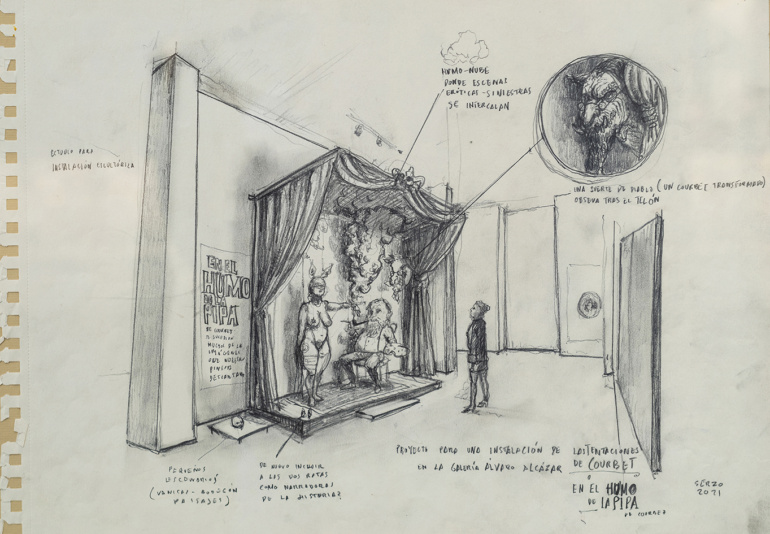 ESTUDIO PARA
INSTALACIÓN ESCULTÓRICA
HUMO-NUBE
DONDE ESCENAS
ERÓTICAS-SINIESTRAS
SE INTERCALAN
UNA SUERTE DE DIABLO (UN COURBET TRANSFORMADO)
OBSERVA TRAS EL TELÓN
EN EL
HUMO
DE LA
PIPA
DE COURBET
DE LA
PEQUEÑOS
ESCENARIOS
(VANITAS-
PAISAJES)
DE NUEVO INCLUIR
A LAS DOS RATAS
COMO NARRADORAS
DE LA HISTORIA?
PROYECTO PARA UNA INSTALACIÓN DE
EN LA GALERÍA ÁLVARO ALCÁZAR
LAS TENTACIONES
DE COURBET
O
EN EL HUMO
DE LA PIPA
DE COURBET
SERZO
2021